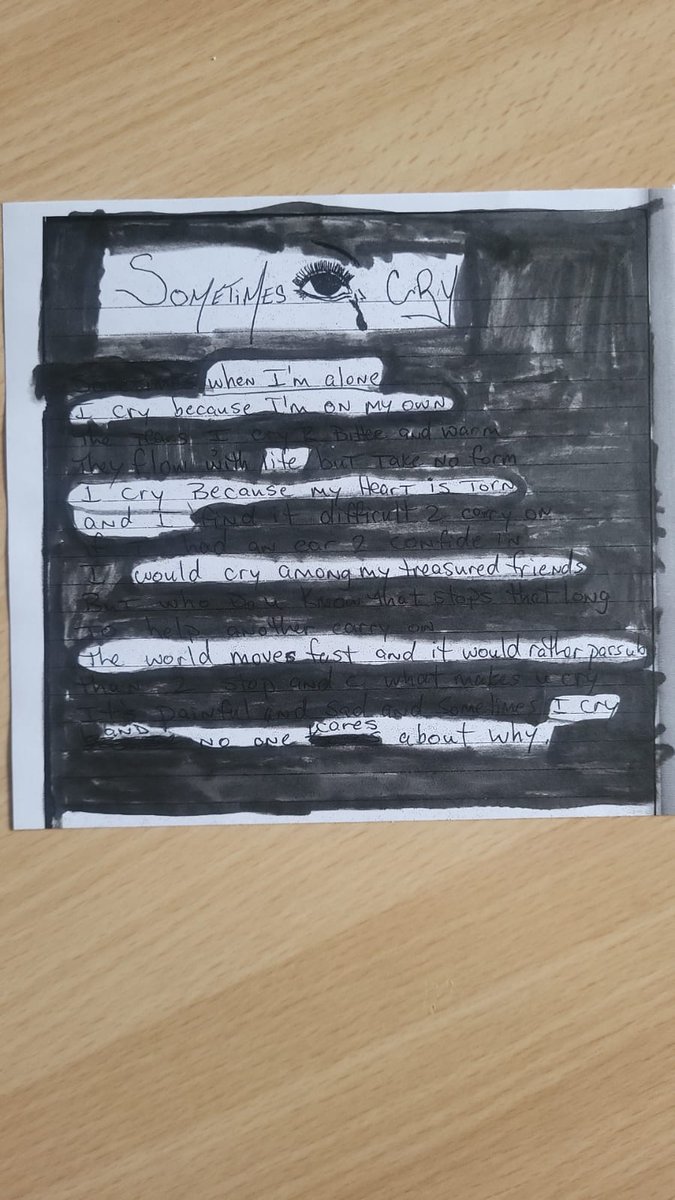 SOMETIMES CRY
when I'm alone
I cry because I'm on my own
The tears I cry R Bitter and warm
They flow with life but TAKE NO form
I cry Because my Heart is Torn
and I find it difficult 2 carry on
If I had an ear 2 confide in
I would cry among my treasured friends
But who Do u Know that stops that long
To help another carry on
the world moves fast and it would rather pass u
than 2 stop and c what makes u cry
It's painful and sad and sometimes I cry
and no one cares about why